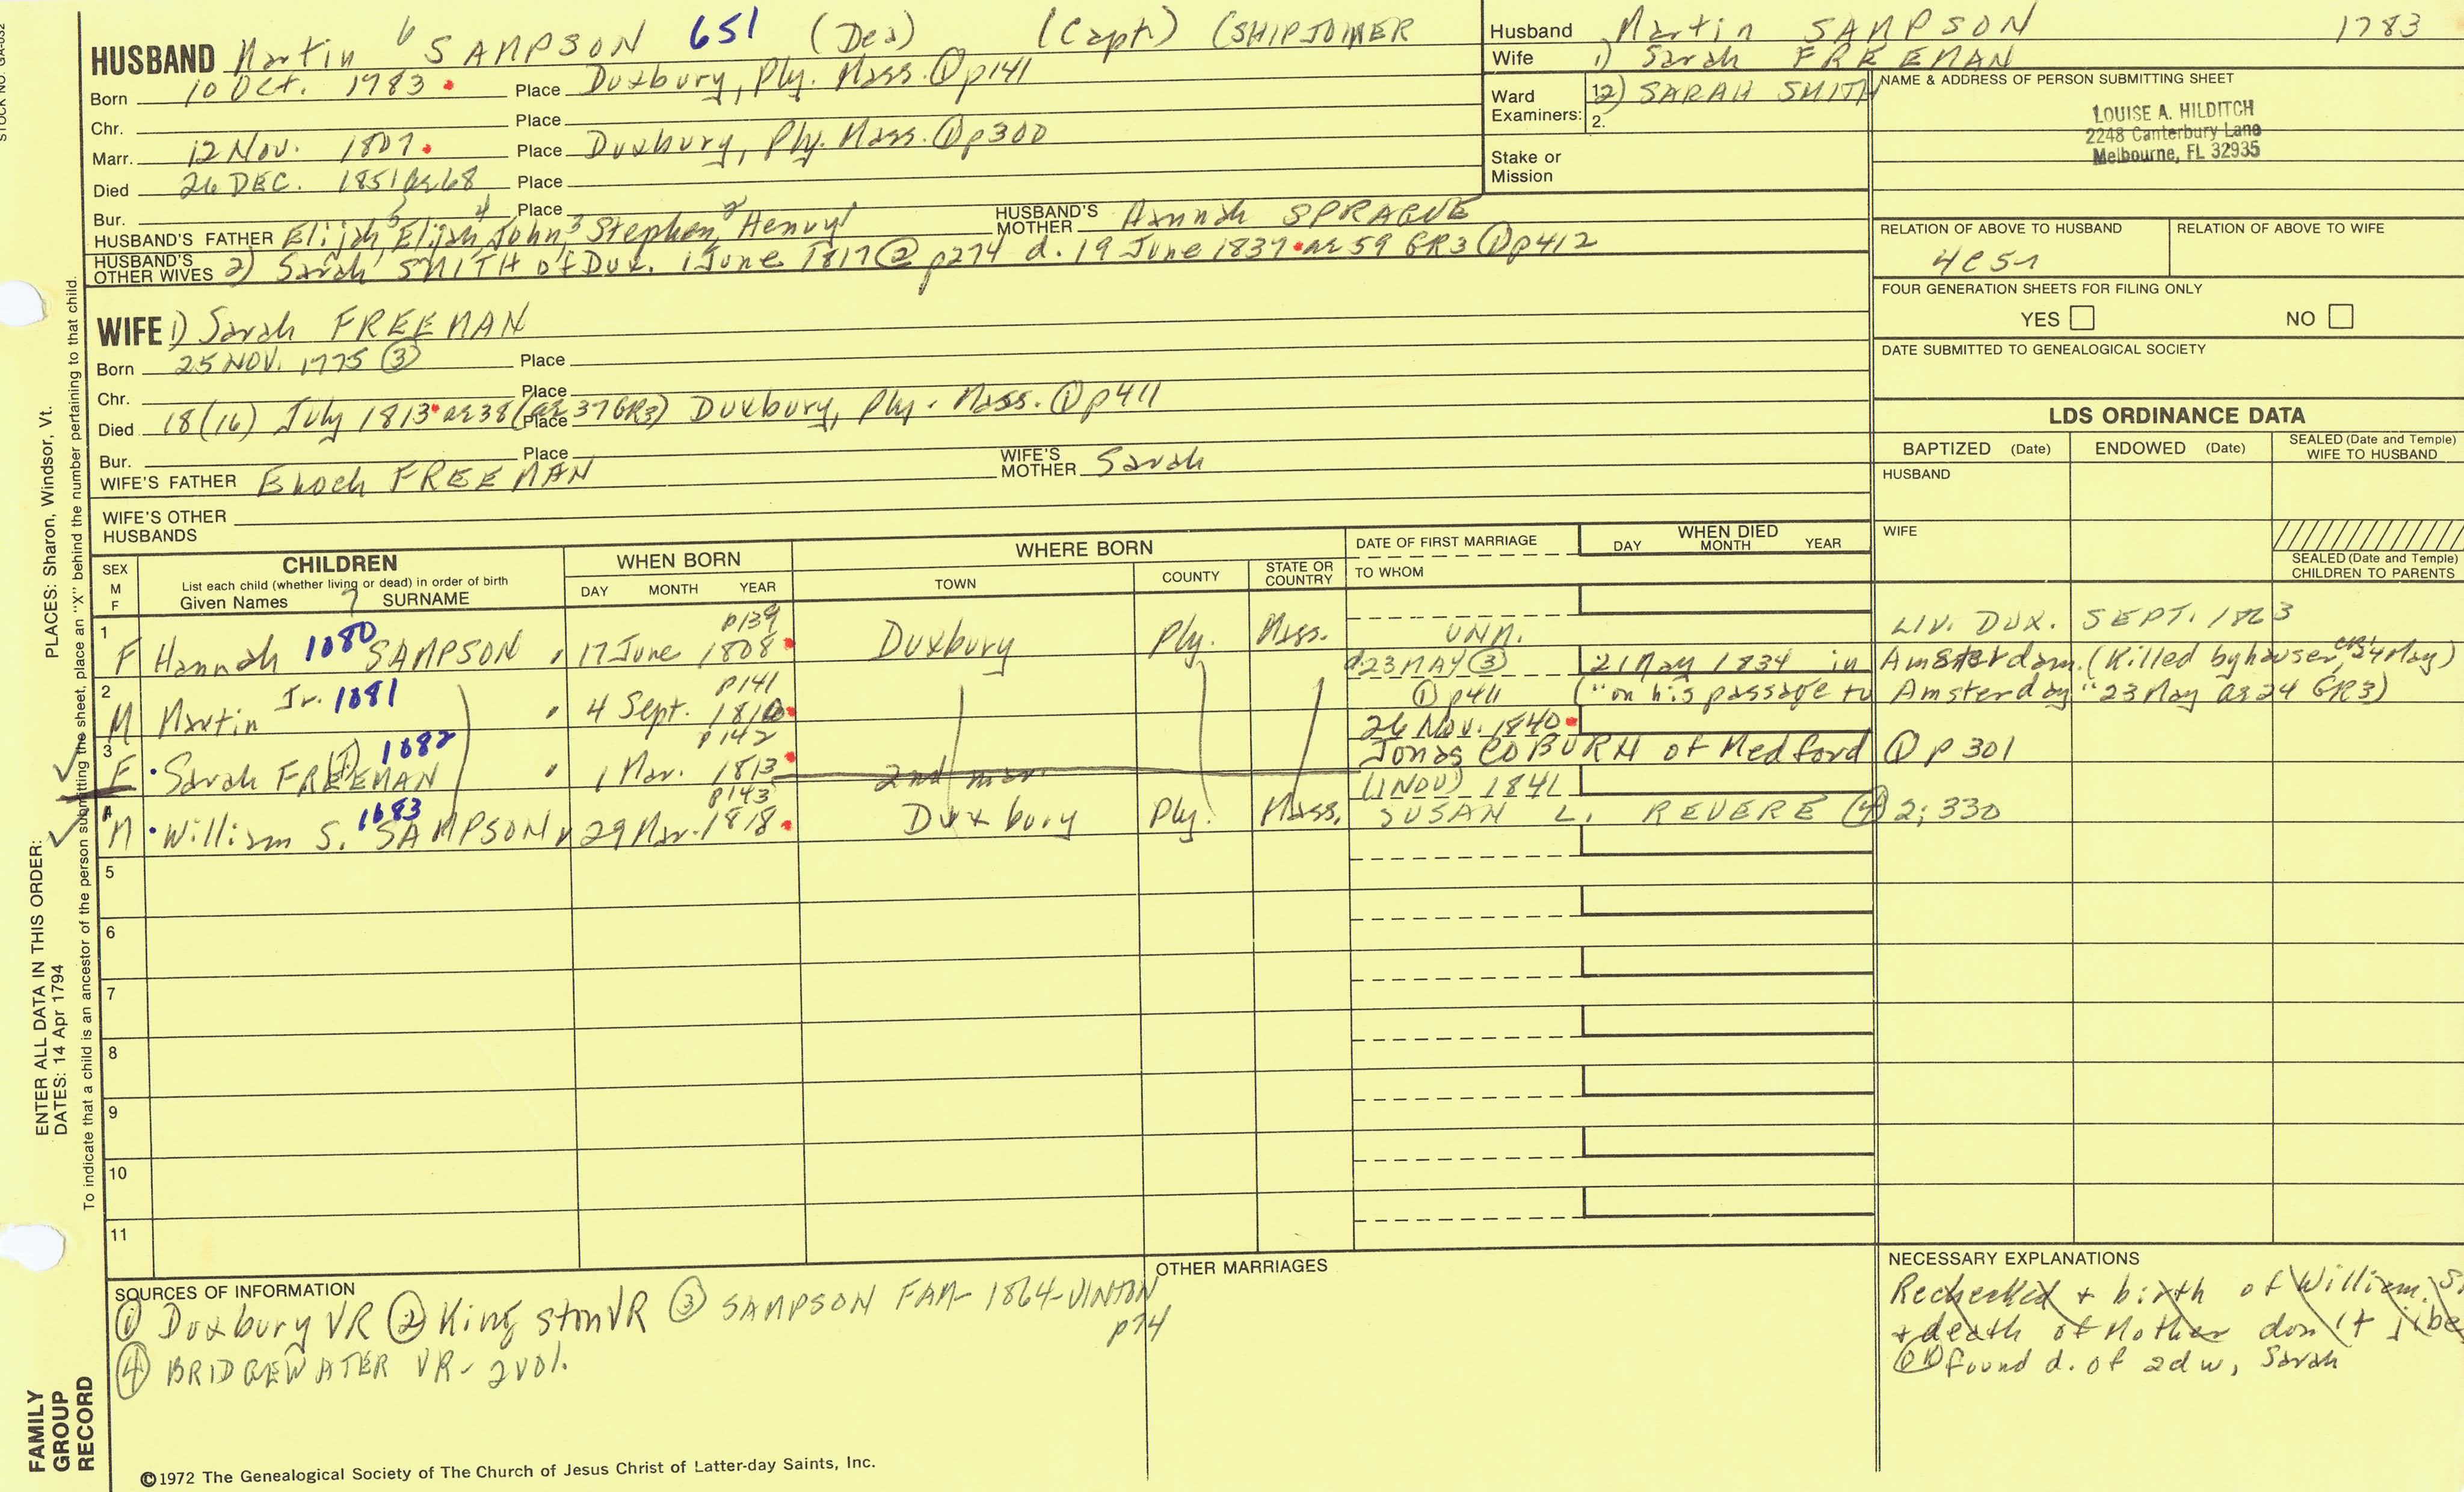 STOCK NO. GA-032
HUSBAND Martin 6 SAMPSON 651 (Dea) (Capt) (SHIPJOINER
Born 10 Oct. 1783 Place Duxbury, Ply. Mass. ① p141
Chr. Place
Marr. 12 Nov. 1807 Place Duxbury, Ply. Mass. ① p300
Died 26 DEC. 1851 ae 68 Place
Bur. Place
HUSBAND'S FATHER Elijah 5 Elijah 4 John 3 Stephen 2 Henry 1 HUSBAND'S MOTHER Hannah SPRAGUE
HUSBAND'S OTHER WIVES 2) Sarah SMITH of Dux. 1 June 1817 ② p274 d. 19 June 1837 ae 59 GR3 ① p412
Husband Martin SAMPSON 1783
Wife 1) Sarah FREEMAN
Ward Examiners: 1. 2) SARAH SMITH
2.
Stake or Mission
NAME & ADDRESS OF PERSON SUBMITTING SHEET
LOUISE A. HILDITCH
2248 Canterbury Lane
Melbourne, FL 32935
RELATION OF ABOVE TO HUSBAND RELATION OF ABOVE TO WIFE
FOUR GENERATION SHEETS FOR FILING ONLY
YES NO
DATE SUBMITTED TO GENEALOGICAL SOCIETY
WIFE 1) Sarah FREEMAN
Born 25 NOV. 1775 ③ Place
Chr. Place
Died 18 (16) July 1813 ae 38 (ae 37 GR3) Place Duxbury, Ply. Mass. ① p411
Bur. Place
WIFE'S FATHER Enoch FREEMAN WIFE'S MOTHER Sarah
WIFE'S OTHER HUSBANDS
LDS ORDINANCE DATA
BAPTIZED (Date) ENDOWED (Date) SEALED (Date and Temple) WIFE TO HUSBAND
HUSBAND
WIFE
SEALED (Date and Temple) CHILDREN TO PARENTS
SEX M F CHILDREN List each child (whether living or dead) in order of birth Given Names 7 SURNAME
WHEN BORN DAY MONTH YEAR
WHERE BORN TOWN COUNTY STATE OR COUNTRY
DATE OF FIRST MARRIAGE TO WHOM
WHEN DIED DAY MONTH YEAR
1 F Hannah 1080 SAMPSON 17 June 1808 p139 Duxbury Ply. Mass. UNM. LIV. DUX. SEPT. 1863
2 M Martin Jr. 1081 4 Sept. 1810 p141 d. 23 MAY ③ 21 May 1834 in Amsterdam. (Killed by hawser, 24 May)
① p411 ("on his passage to Amsterdam" 23 May ae 24 GR3)
3 F Sarah FREEMAN (T) 1082 1 Mar. 1813 p142 26 Nov. 1840
Jonas COBURN of Medford ① p301
2nd mar.
4 M William S. 1083 SAMPSON 29 Mar. 1818 p143 Duxbury Ply. Mass. (1 NOV) 1841
SUSAN L. REVERE ④ 2; 330
5
6
7
8
9
10
11
SOURCES OF INFORMATION
① Duxbury VR ② Kingston VR ③ SAMPSON FAM- 1864-VINTON p74
④ BRIDGEWATER VR- 2 vol.
OTHER MARRIAGES
NECESSARY EXPLANATIONS
Rechecked + birth of William S.
+ death of Mother don't jibe
OK found d. of 2d w, Sarah
©1972 The Genealogical Society of The Church of Jesus Christ of Latter-day Saints, Inc.
FAMILY GROUP RECORD
ENTER ALL DATA IN THIS ORDER:
DATES: 14 Apr 1794
PLACES: Sharon, Windsor, Vt.
To indicate that a child is an ancestor of the person submitting the sheet, place an "X" behind the number pertaining to that child.